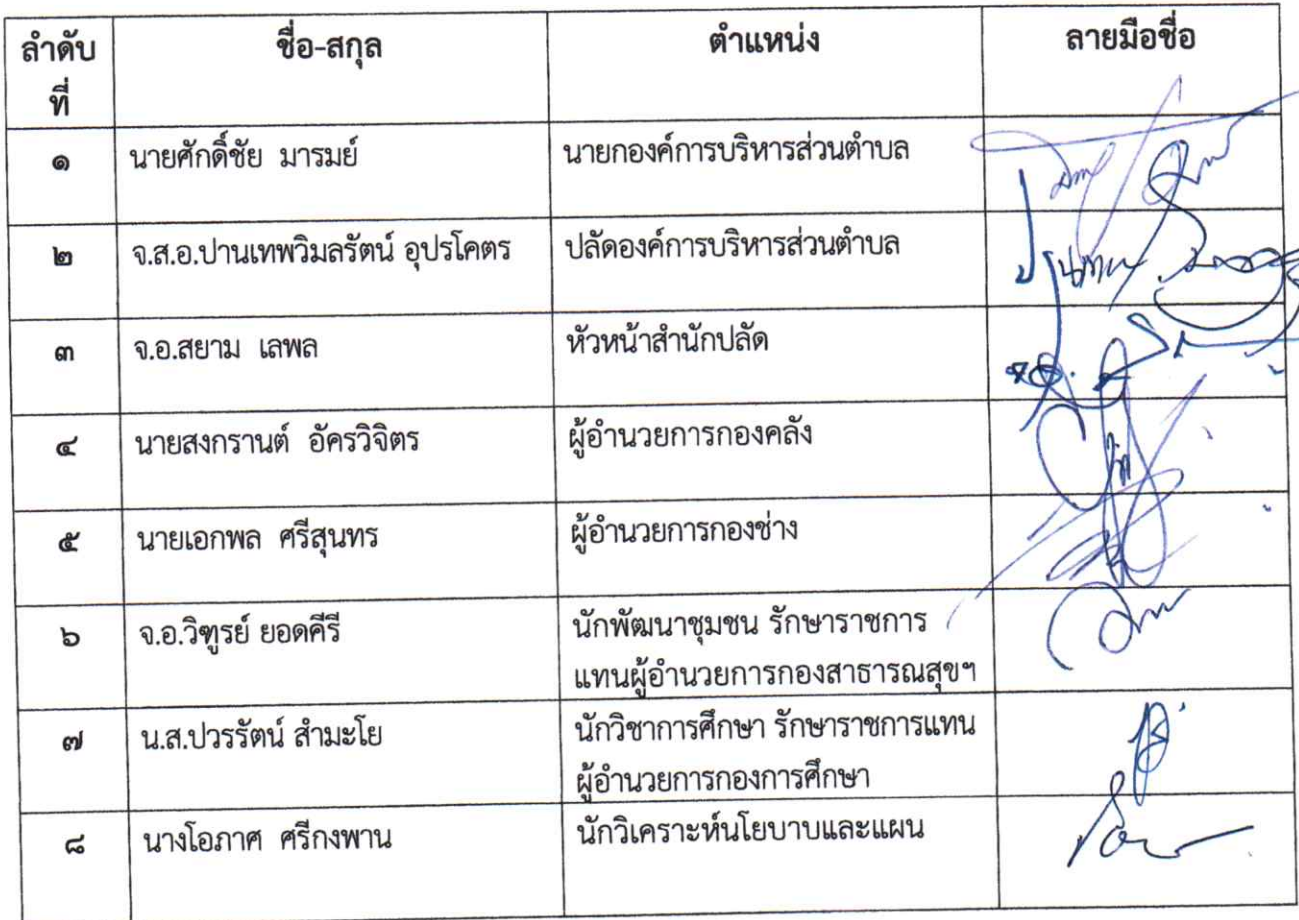 ลำดับ ชื่อ-สกุล ตำแหน่ง ลายมือชื่อ
ที่
๑ นายศักดิ์ชัย มารมย์ นายกองค์การบริหารส่วนตำบล
๒ จ.ส.อ.ปานเทพวิมลรัตน์ อุปรโคตร ปลัดองค์การบริหารส่วนตำบล
๓ จ.อ.สยาม เลพล หัวหน้าสำนักปลัด
๔ นายสงกรานต์ อัครวิจิตร ผู้อำนวยการกองคลัง
๕ นายเอกพล ศรีสุนทร ผู้อำนวยการกองช่าง
๖ จ.อ.วิฑูรย์ ยอดคีรี นักพัฒนาชุมชน รักษาราชการ
แทนผู้อำนวยการกองสาธารณสุขฯ
๗ น.ส.ปวรรัตน์ สำมะโย นักวิชาการศึกษา รักษาราชการแทน
ผู้อำนวยการกองการศึกษา
๘ นางโอภาศ ศรีกงพาน นักวิเคราะห์นโยบาบและแผน